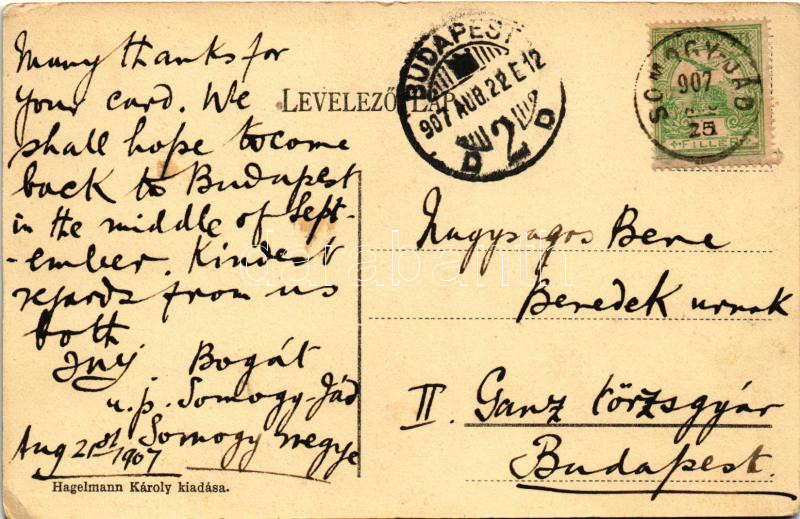 Many thanks for
your card. We
shall hope to come
back to Budapest
in the middle of Sept-
-ember. Kindest
regards from us
both
Bogát
u.p. Somogy-Jád
Somogy megye
Aug 21st 1907
Hagelmann Károly kiadása.
LEVELEZŐ LAP
BUDAPEST
907 AUG. 22 E 12
D 2 D
SOMOGY-JÁD
907
FILLÉR
Nagyságos Bere
Benedek urnak
II. Ganz törzsgyár
Budapest.
darabanth